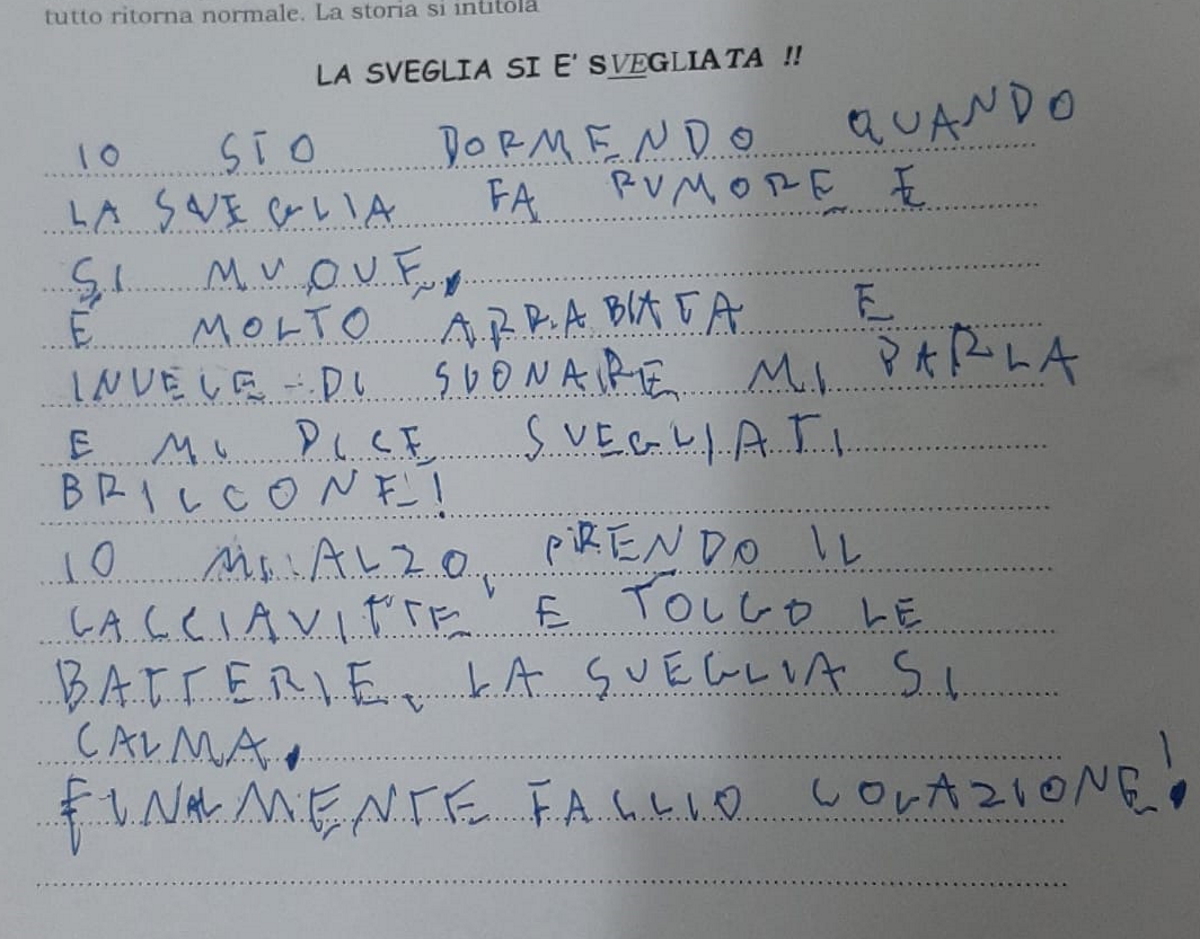 tutto ritorna normale. La storia si intitola
LA SVEGLIA SI E' SVEGLIATA !!
IO STO DORMENDO QUANDO
LA SVEGLIA FA RUMORE E
SI MUOVE.
È MOLTO ARRABIATA E
INVECE DI SUONARE MI PARLA
E MI DICE SVEGLIATI
BRICCONE!
IO MI ALZO, PRENDO IL
CACCIAVITTE E TOLGO LE
BATTERIE, LA SVEGLIA SI
CALMA.
FINALMENTE FACCIO COLAZIONE!